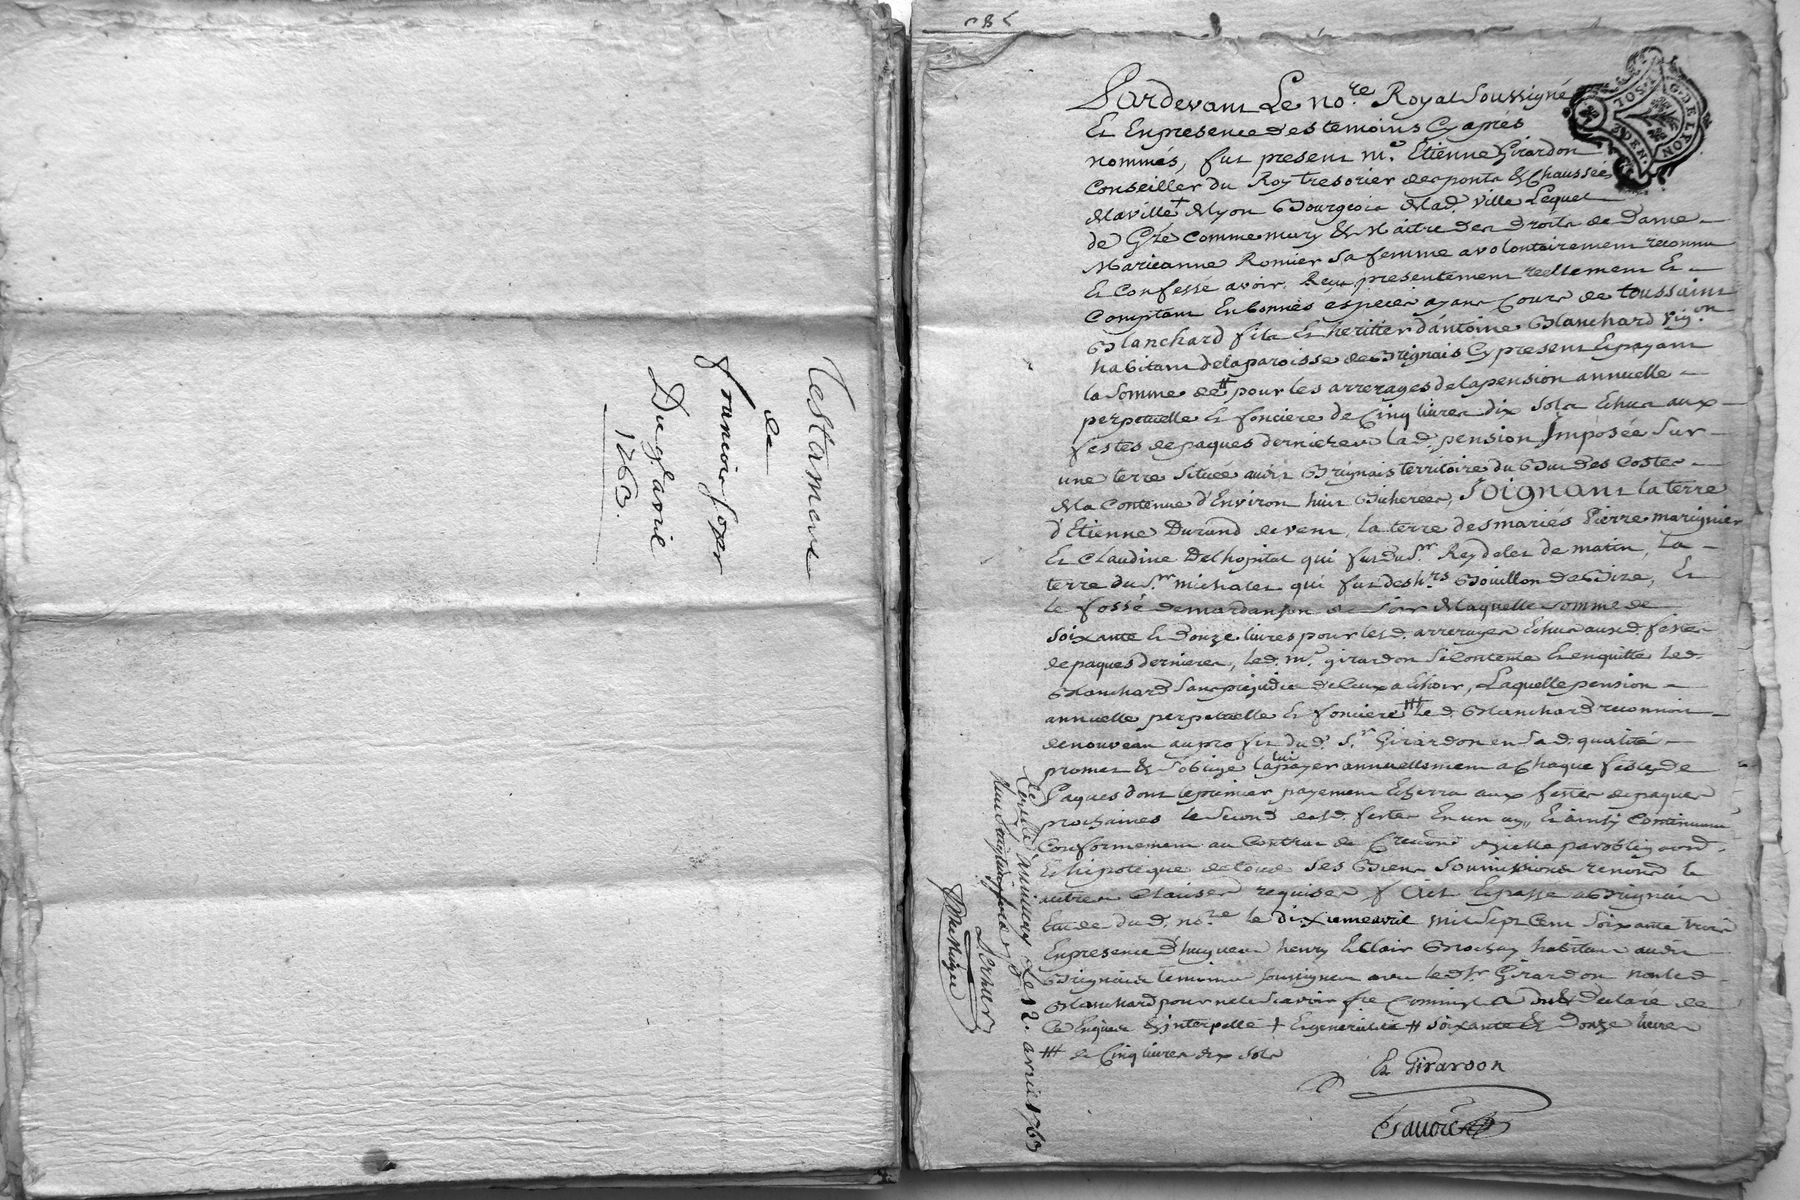 Testament
de
francoise goyet
Du 9 avril
1763.
Pardevant Le no.re Royal Soussigné
Et Enpresence des temoins Cyaprés
nommés, fut present m.e Etienne Girardon
Conseiller du Roy tresorier des ponts & Chaussée
de la ville + de Lyon Bourgeois de lad. ville Lequel
de Gré comme mary & Maitre des Droits de Dame
Marieanne Romier sa femme a volontairement reconnu
Et Confesse avoir Reçu presentement reellement Et
Comptant En bonnes especes ayant Cours de toussaint
Blanchard fils Et heritier d'antoine Blanchard vig.on
habitant de la paroisse de Brignais Cy present Et payant
la Somme de # pour les arrerages de la pension annuelle
perpetuelle Et fonciere de Cinq livres dix sols Echus aux
festes de paques dernieres lad. pension Imposée Sur
une terre Située audit Brignais territoire du des Costes
de la Contenue d'Environ huit Bicherees, Joignant la terre
d'Etienne Durand de vent, la terre des mariés Pierre marignier
Et Claudine Delhopital qui fut du S.r Reydelet de matin, La
terre du S.r michalet qui fut des h.rs Bouillon de Bize, Et
le fossé de mardanson de soir de laquelle somme de
Soixante Et Donze livres pour lesd. arrerages Echus auxd. festes
de paques dernieres, led. m.e girardon Se Contente Et enquitte led.
Blanchard Sans prejudice de Ceux a Echoir, Laquelle pension
annuelle perpetuelle Et fonciere ### led. Blanchard reconnoit
de nouveau au profit dud. S.r Girardon en sad. qualité
promet & S'oblige la lui payer annuellement a Chaque feste de
Paques dont le premier payement Echerra aux festes de paques
prochaines le Second auxd. festes En un an, Et ainsy Continuant
Conformement au Contrat de Creation d'icelle par obligaond.
Et hipoteque de tous ses Biens Soumissions renond. &
autres Clauses requises fait Et passé a Brignais
Etude du d. no.re le dixieme avril mil Sept Cent Soixante trois
En presence d'hugues henry Et Clair Brochay habitans audit
Brignais temoins soussignes avec led. S.r Girardon non led.
Blanchard pour ne le Scavoir faire Comme il a dit & Declaré de
Ce Enquis & interpellé + Et generalité # Soixante & Donze livres
### de Cinq livres dix sols
Et Girardon
Controllé a annonay Le 12. avril 1763
Reçu